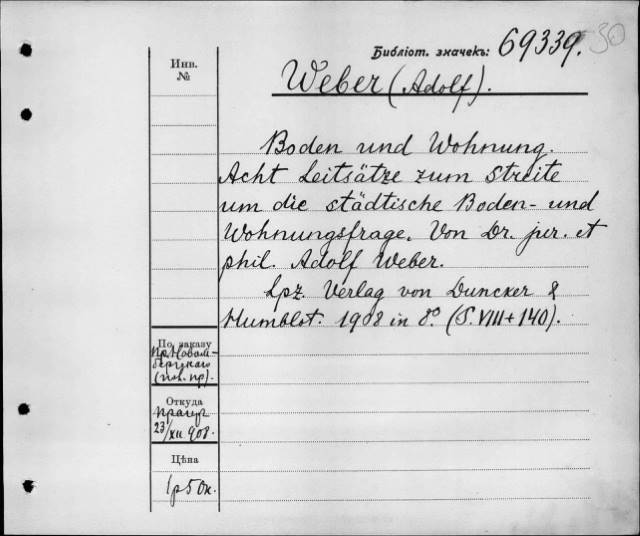 Библіот. значекъ: 69339. 50
Инв.
№
Weber (Adolf).
Boden und Wohnung.
Acht Leitsätze zum Streite
um die städtische Boden- und
Wohnungsfrage. Von Dr. jur. et
phil. Adolf Weber.
Lpz. Verlag von Duncker &
Humblot. 1908 in 8º. (S. VIII + 140).
По заказу
Откуда
23/XII 908.
Цѣна
1р 50к.